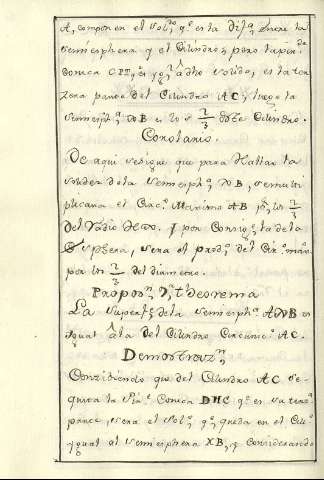 A, componen el Sol.do q.e es la Dif.a entre la
semiesphera y el Cilindro; pero la pir.de
Conica CPT, es yg.l â dho Solido, es la ter-
zera parte del Cilindro AC; luego la
semiesph.a NB es los 2/3 dste Cilindro.
Corolario.
De aqui sesigue que para Hallar la
solidez dela Semiesph.a NB, semulti
plicara el Circ.o Maximo AB p.r los 2/3
del Radio y por Consig.te la dela
Esphera, sera el prod.to del Cir.o max.o
por los 2/3 del diametro.
Propos.n Y theorema
La Superf.e dela Semiesph.a ANB es
ygual â la del Cilindro Circunsc.to AC.
Demostraz.n
Concibiendo que del Cilindro AC se-
quita la Pir.e Conica DHC q.e es su terz.a
parte, sera el Sol.o q.e queda en el Cil.o
ygual al Semiesphera XB, y Considerando